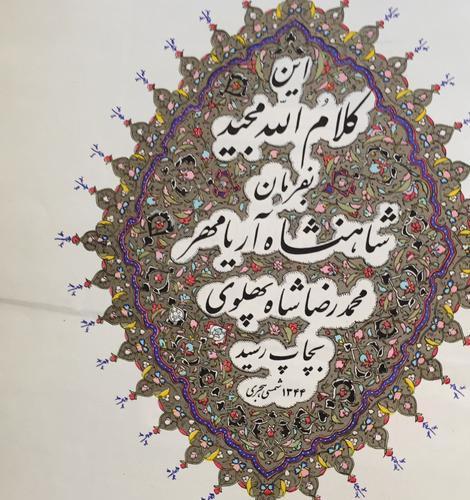 این
کلامُ اللّه مجید
بفرمان
شاهنشاه آریامهر
محمد رضا شاه پهلوی
بچاپ رسید
۱۳۴۴ شمسی هجری